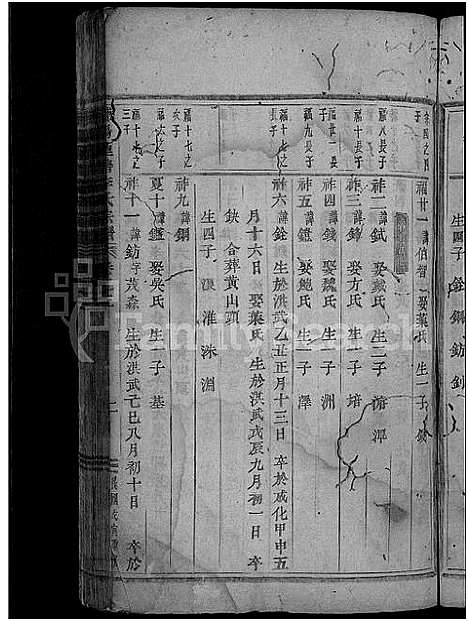 生四子 鈁
余四之四子
福廿一 諱伯智 娶葉氏 生一子
福八長子
祚一 諱鉽 娶戴氏 生二子 潭
福十長子
祚三 諱鋒 娶方氏 生一子 培
祚四 諱錢 娶魏氏 生一子 洲
福九長子
祚五 諱鐙 娶鮑氏 生一子 澤
福十七之長子
祚六 諱銓 生於洪武乙丑正月十三日 卒於成化甲申五
月十六日 娶葉氏 生於洪武戊辰九月初一日 卒
缺 合葬黃山頭
生四子 淮洙淵
福十七之次子
祚九 諱鋼
福六之子
祚十 諱鑑 娶吳氏 生一子 基
福十七之三子
祚十一 諱鈁 字茂森 生於洪武己巳八月初十日 卒於
FamilySearch